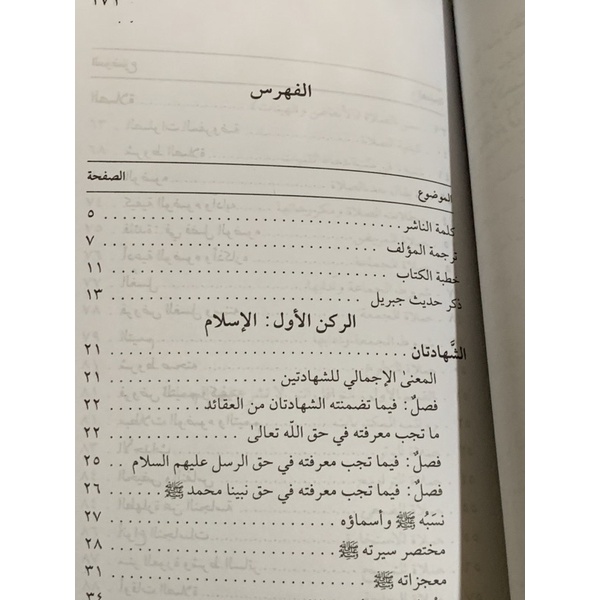 ٢٧١
الفهرس
الموضوع الصفحة
كلمة الناشر ٥
ترجمة المؤلف ٧
خطبة الكتاب ١١
ذكر حديث جبريل ١٣
الركن الأول: الإسلام
الشَّهادتان ٢١
المعنىٰ الإجمالي للشهادتين ٢١
فصلٌ: فيما تضمنته الشهادتان من العقائد ٢٢
ما تجب معرفته في حق اللّه تعالىٰ ٢٢
فصلٌ: فيما تجب معرفته في حق الرسل عليهم السلام ٢٥
فصلٌ: فيما تجب معرفته في حق نبينا محمد ﷺ ٢٦
نسَبُه ﷺ وأسماؤه ٢٧
مختصر سيرته ﷺ ٢٨
معجزاته ﷺ ٣١
٣٤